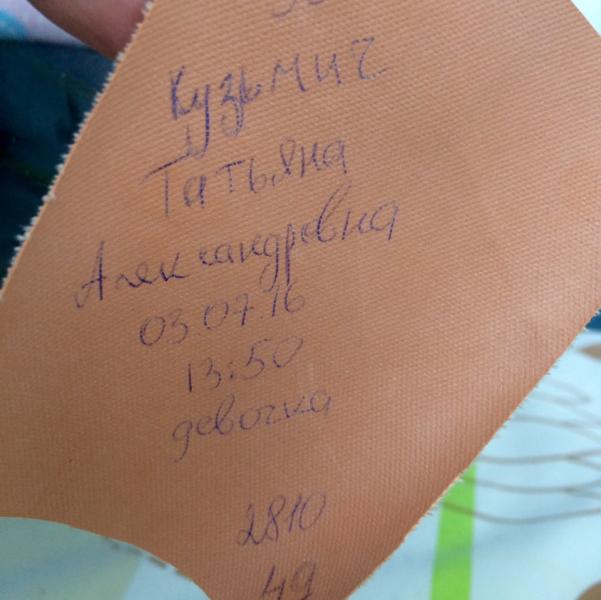 Кузьмич
Татьяна
Александровна
03.07.16
13:50
девочка
2810
49